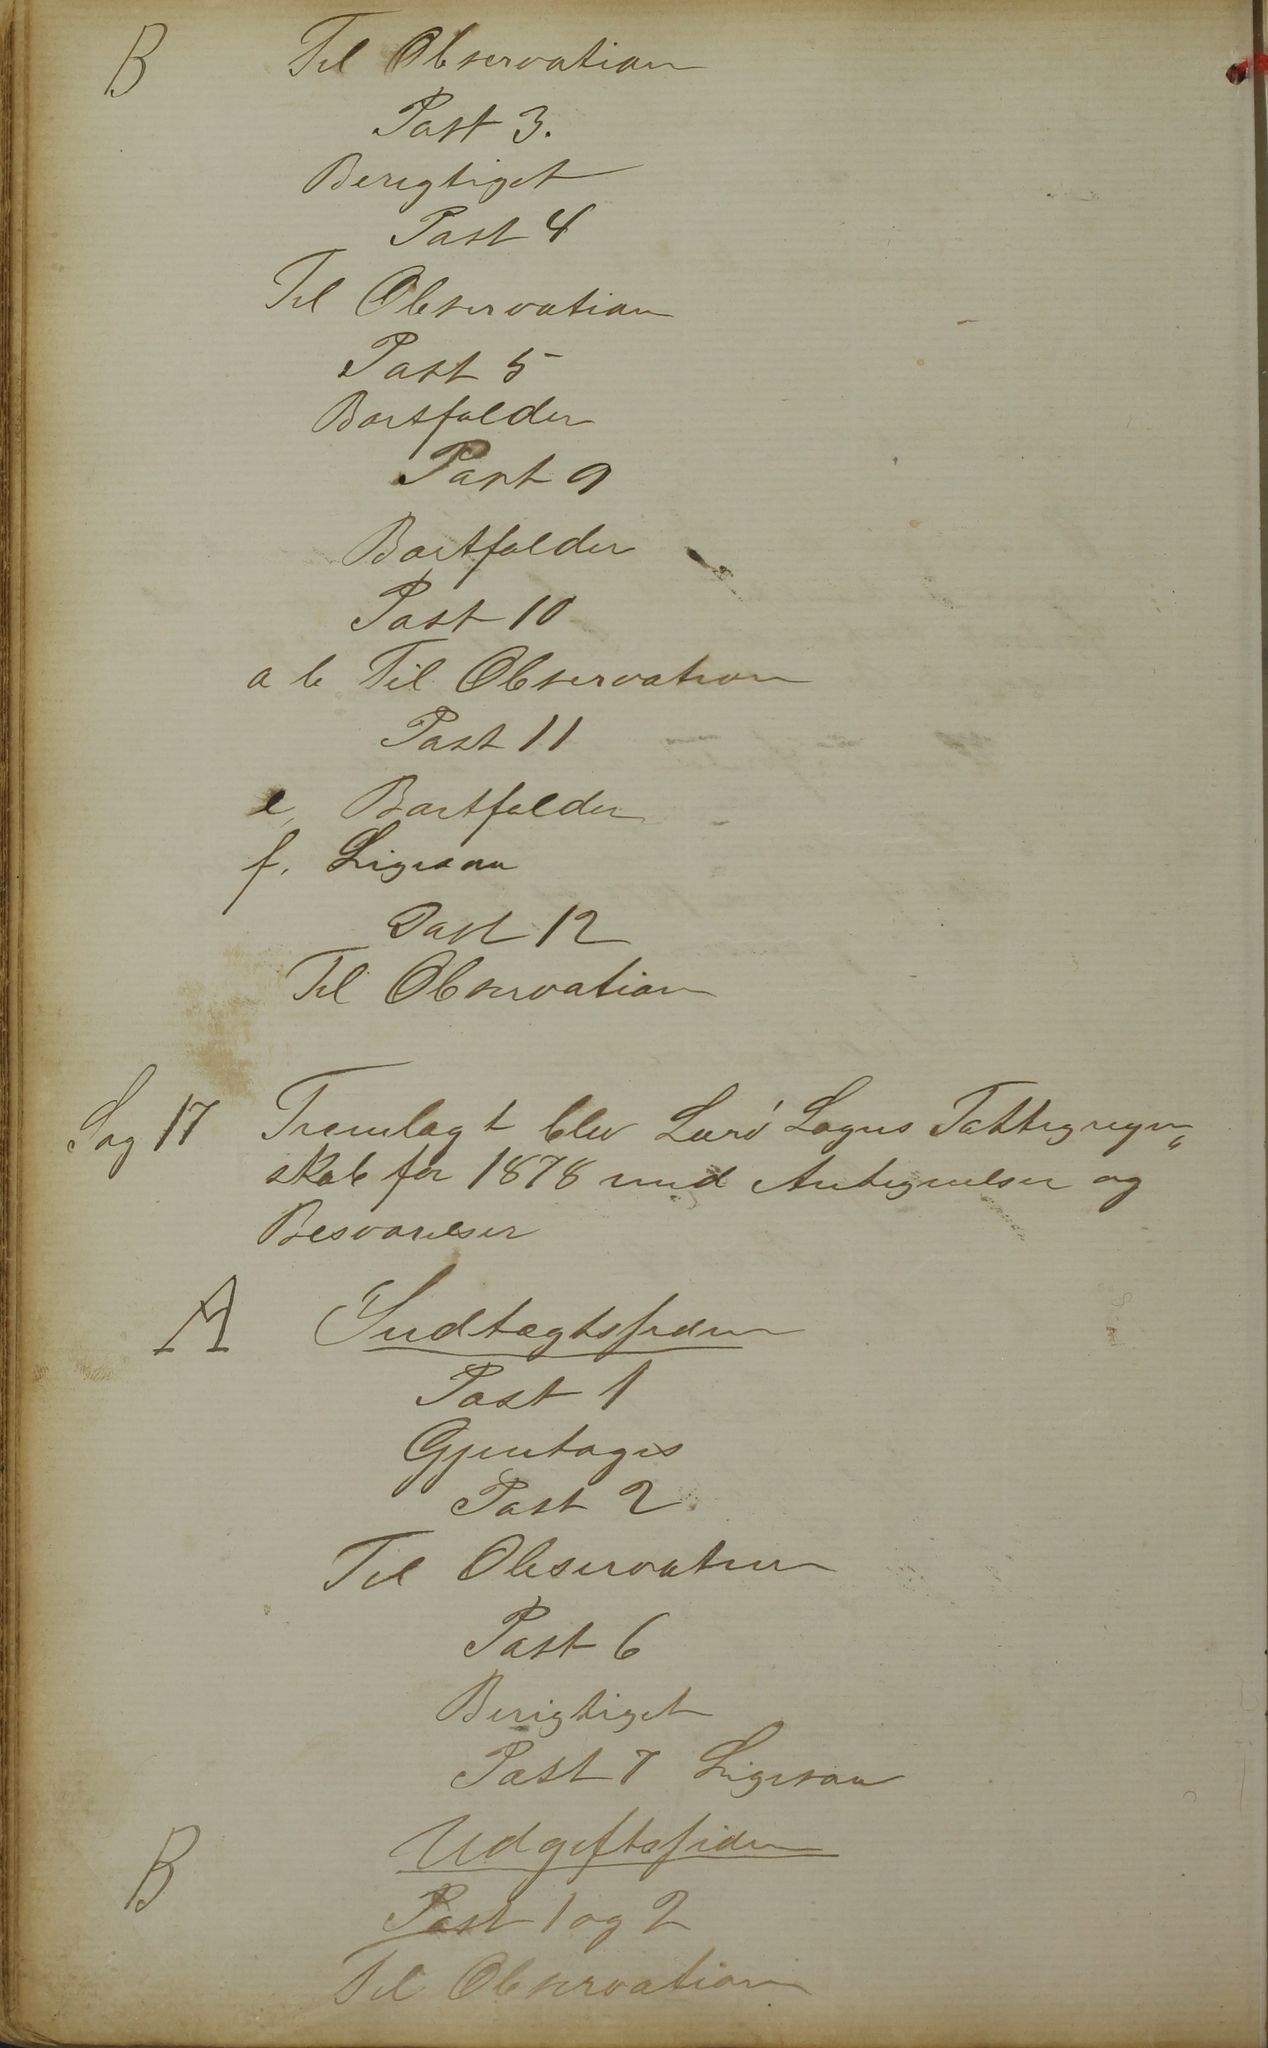 B Til Observation
Post 3.
Berigtiget
Post 4
Til Observation
Post 5
Bortfalder
Post 9
Bortfalder
Post 10
a b Til Observation
Post 11
e, Bortfalder
f. Ligesaa
Post 12
Til Observation
Sag 17 Fremlagt blev Lurø Sogns Fattigregn„
skab for 1878 med Antegnelser og
Besvarelser
A Indtægtssiden
Post 1
Gjentages
Post 2
Til Observation
Post 6
Berigtiget
Post 7 Ligesaa
B Udgiftssiden
Post 1 og 2
Til Observation